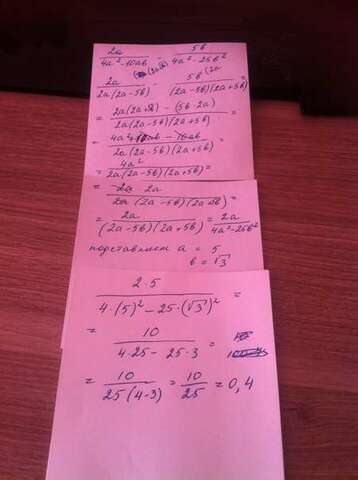 2a/(4a² - 10ab) - 5b/(4a² - 25b²)
2a/(2a(2a-5b)) - 5b(2a/((2a-5b)(2a+5b)) =
= (2a(2a+5b) - (5b·2a))/(2a(2a-5b)(2a+5b)) =
= (4a²+10ab - 10ab)/(2a(2a-5b)(2a+5b)) =
= 4a²/(2a(2a-5b)(2a+5b)) =
= 2a·2a/(2a(2a-5b)(2a+5b)) =
= 2a/((2a-5b)(2a+5b)) = 2a/(4a²-25b²)
подставляем a = 5
b = √3
2·5/(4·(5)² - 25·(√3)²) =
= 10/(4·25 - 25·3) =
= 10/(25(4-3)) = 10/25 = 0,4